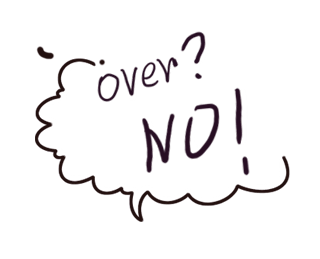 over?
NO!